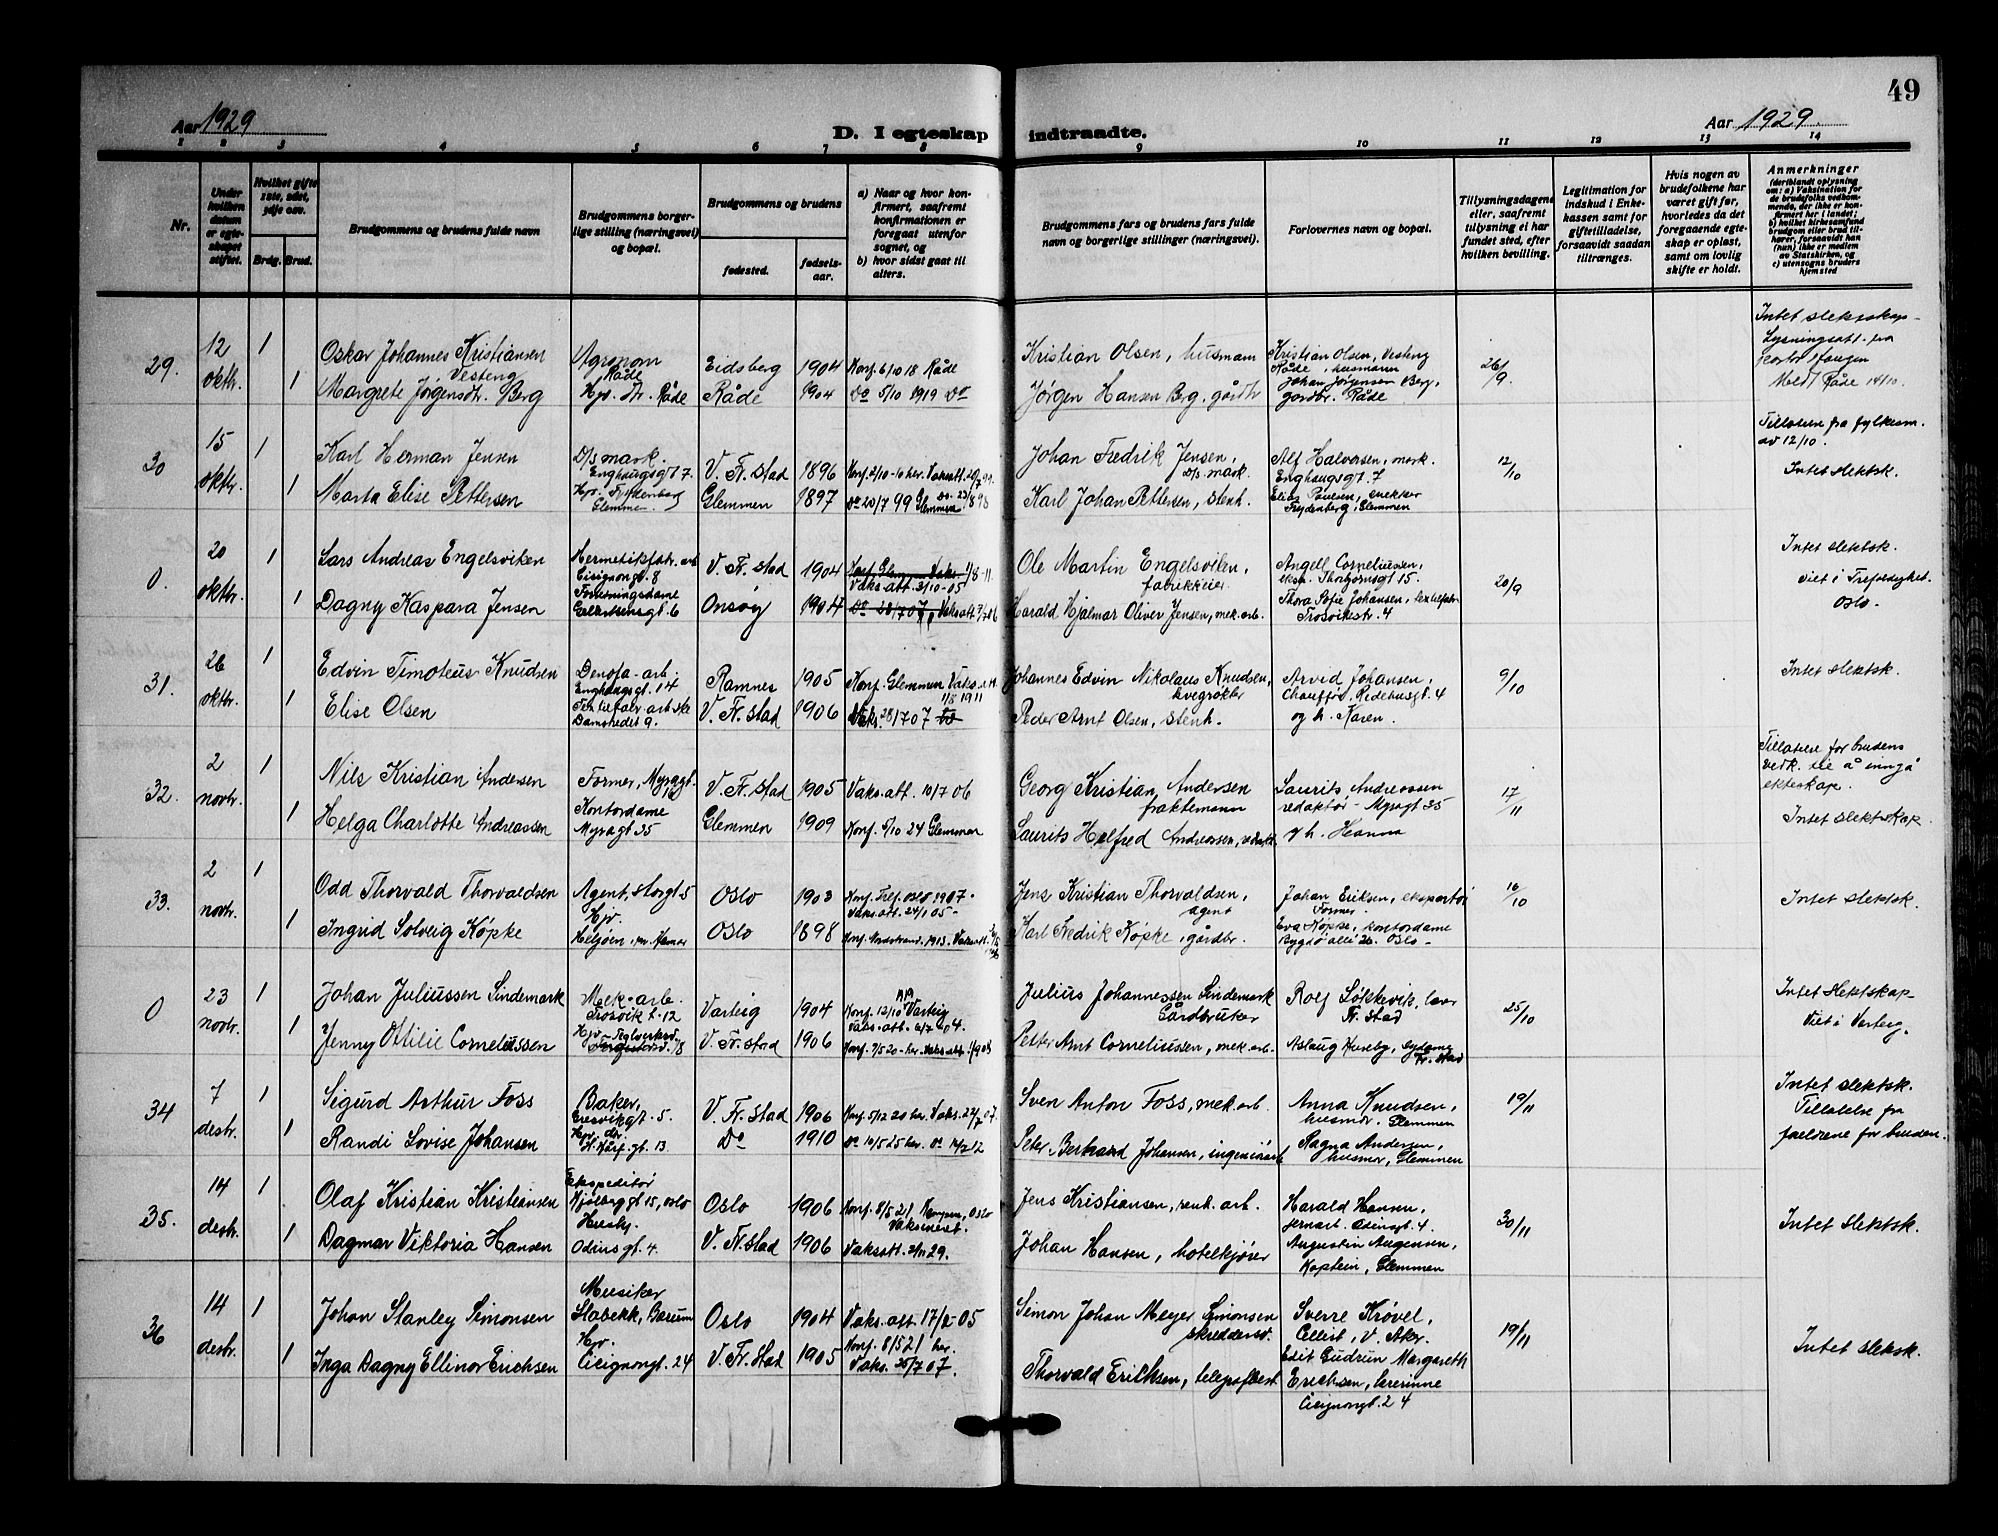 49
Aar 1929
D. I egteskap indtraadte.
Aar 1929.
1 2 3 4 5 6 7 8 9 10 11 12 13 14
Nr.
Under hvilken datum er egteskapet stiftet.
Hvilket gifte 1ste, 2det, 3dje osv.
Brdg. Brud.
Brudgommens og brudens fulde navn
Brudgommens borgerlige stilling (næringsvei) og bopæl.
Brudgommens og brudens
fødested.
fødselsaar.
a) Naar og hvor konfirmert, saafremt konfirmationen er foregaat utenfor sognet, og
b) hvor sidst gaat til alters.
Brudgommens fars og brudens fars fulde navn og borgerlige stillinger (næringsvei).
Forlovernes navn og bopæl.
Tillysningsdagene eller, saafremt tillysning ei har fundet sted, efter hvilken bevilling.
Legitimation for indskud i Enkekassen samt for giftetilladelse, forsaavidt saadan tiltrænges.
Hvis nogen av brudefolkene har været gift før, hvorledes da det foregaaende egteskap er opløst, samt om lovlig skifte er holdt.
Anmerkninger
(deriblandt oplysning om: a) Vaksination for de brudefolks vedkommende, der ikke er konfirmert her i landet; b) hvilket kirkesamfund brudgom eller brud tilhører, forsaavidt han (hun) ikke er medlem av Statskirken, og c) utensogns bruders hjemsted
29.
12 oktbr.
1
1
Oskar Johannes Kristiansen
Vesteng
Margrete Jørgensdtr. Berg
Agronom
Råde
Hjv. Dr. Råde
Eidsberg 1904 Konf. 6/10 18 Råde
Råde 1904 Do 5/10 1919 Do
Kristian Olsen, husmann
Jørgen Hansen Berg, gårdbr
Kristian Olsen, Vesteng
Råde, husmann
Johan Jørgensen Berg,
gårdbr. Råde
26/9.
Intet slektskap -
Lysningsatt. fra
Medt Råde 14/10.
30
15 oktbr.
1
1
Karl Herman Jensen
Marta Elise Pettersen
D/s mask.
Enghaugsgt 7.
Glemmen.
V. Fr. stad 1896
Glemmen 1897
Johan Fredrik Jensen,
D/s mask.
Karl Johan Pettersen, stenh.
Alf Halversen, mask.
Enghaugsgt. 7
Elias Paulsen, snekker
Frydenberg, Glemmen
12/10
Tillatelse fra fylkesm.
av 12/10.
Intet slektsk.
0.
20 oktbr.
1
1
Lars Andreas Engelsviken
Dagny Kaspara Jensen
Hermetikfabr. arb
Cicignongt. 8
Forretningsdame
V. Fr. stad 1904
Vaks. att. 3/10-05
Onsøy 1904
Ole Martin Engelsviken,
fabrikkeier.
Harald Hjalmar Oliver Jensen, mek. arb.
Angell Corneliussen,
eksp. Thorbjørnsgt 15.
Thora Sofie Johansen,
Trosvikstr. 4
20/9
Intet slektsk.
viet i Trefoldighet.
Oslo.
31.
26 oktbr.
1
1
Edvin Timoteus Knudsen
Elise Olsen
Denofa-arb.
Enghaugsgt. 14
Damstredet 9.
Ramnes 1905 Konf. Glemmen Vaks. att.
11/8 1911
V. Fr. stad 1906 Vaks. 28/7 07
Johannes Edvin Nikolaus Knudsen,
kvegrøkter
Peder Arnt Olsen, stenh.
Arvid Johansen,
Chauffør Ridehusgt. 4
og h. Karen.
9/10
Intet slektsk.
32.
2 novbr.
1
1
Nils Kristian Andersen
Helga Charlotte Andreassen
Former, Myragt.
Kontordame
Myragt 35
V. Fr. stad 1905 Vaks. att. 10/7 06
Glemmen 1909 Konf. 5/10 24 Glemmen
Georg Kristian Andersen
fraktemann
Laurits Helfred Andreassen, redakt.
Laurits Andreassen
redaktør - Myragt 35
og h. Hanna
17/11
Tillatelse for brudens
vedk. til å inngå
ekteskap.
Intet slektskap.
33.
2 novbr.
1
1
Odd Thorvald Thorvaldsen
Ingrid Solveig Köpke
Agent, Storgt 5
Hjv.
Helgøen, pr. Hamar
Oslo 1903
Vaks. att. 24/1 05-
Oslo 1898 Konf. Nordstrand 1913. Vaksatt.
Jens Kristian Thorvaldsen,
agent
Karl Fredrik Köpke, gårdbr.
Johan Eriksen, ekspeditør
Eva Köpke, kontordame
Bygdø alle 26. Oslo-
16/10
Intet slektsk.
0
23 novbr.
1
1
Johan Juliussen Lindemark
Jenny Otilie Corneliussen
Mek-arb.
Trosvik t. 12
Varteig 1904 Konf. 12/10 1919 Varteig
Vaks. att. 6/7 04.
V. Fr. stad 1906
Julius Johannessen Lindemark
Gårdbruker
Petter Arnt Corneliussen, mek. arb.
Rolf Løkkevik,
Fr. stad
Aslaug Huseby, sydame
Fr. stad
25/10
Intet slektskap-
Viet i Varteig.
34
7 desbr.
1
1
Sigurd Arthur Foss
Randi Lovise Johansen
Baker,
V. Fr. stad 1906 Konf. 5/12 20 her. Vaks. 22/7 07.
Do 1910 Do 10/5 25 her. Do 14/2 12
Sven Anton Foss, mek. arb.
Peter Bertrand Johansen, ingeniørarb
Anna Knudsen,
husmor. Glemmen
Ragna Andersen,
husmor, Glemmen
19/11
Intet slektsk.
Tillatelse fra
foreldrene for bruden.
35.
14 desbr.
1
1
Olaf Kristian Kristiansen
Dagmar Viktoria Hansen
Ekspeditør
Mjølbergt 15, Oslo
Husby.
Odinsgt. 4.
Oslo 1906 Konf. 8/5 21 Kampen, Oslo
Vaksinert.
V. Fr. stad 1906 Vaksatt. 2/11 29.
Jens Kristiansen, renh. arb.
Johan Hansen, hotelkjører
Harald Hansen,
jernarb. Odinsgt. 4.
Augustin Augensen,
Kaptein, Glemmen
30/11
Intet slektsk.
36
14 desbr.
1
1
Johan Stanley Simonsen
Inga Dagny Ellinor Erichsen
Musiker
Stabekk, Bærum
Hjv.
Cicignongt. 24
Oslo 1904 Vaks. att. 17/2-05
V. Fr. Stad 1905 Konf. 8/5 21 her.
Vaks. 25/7 07.
Simon Johan Meyer Simonsen
skreddersv.
Thorvald Erichsen, telegrafbest.
Sverre Krøvel,
Cellist, V. Aker.
Edit Gudrun Margareth
Erichsen, lærerinne
Cicignongt. 24
19/11
Intet slektsk.